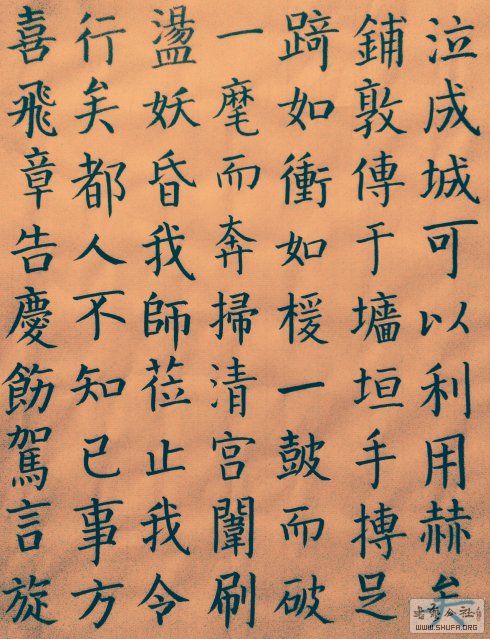 泣成城可以利用赫矣
鋪敦傳于墻垣手搏足
踦如衝如楥一鼓而破
一麾而奔掃清宮闈刷
盪妖昏我師莅止我令
行矣都人不知已事方
喜飛章告慶飭駕言旋
书法公社
WWW.SHUFA.ORG